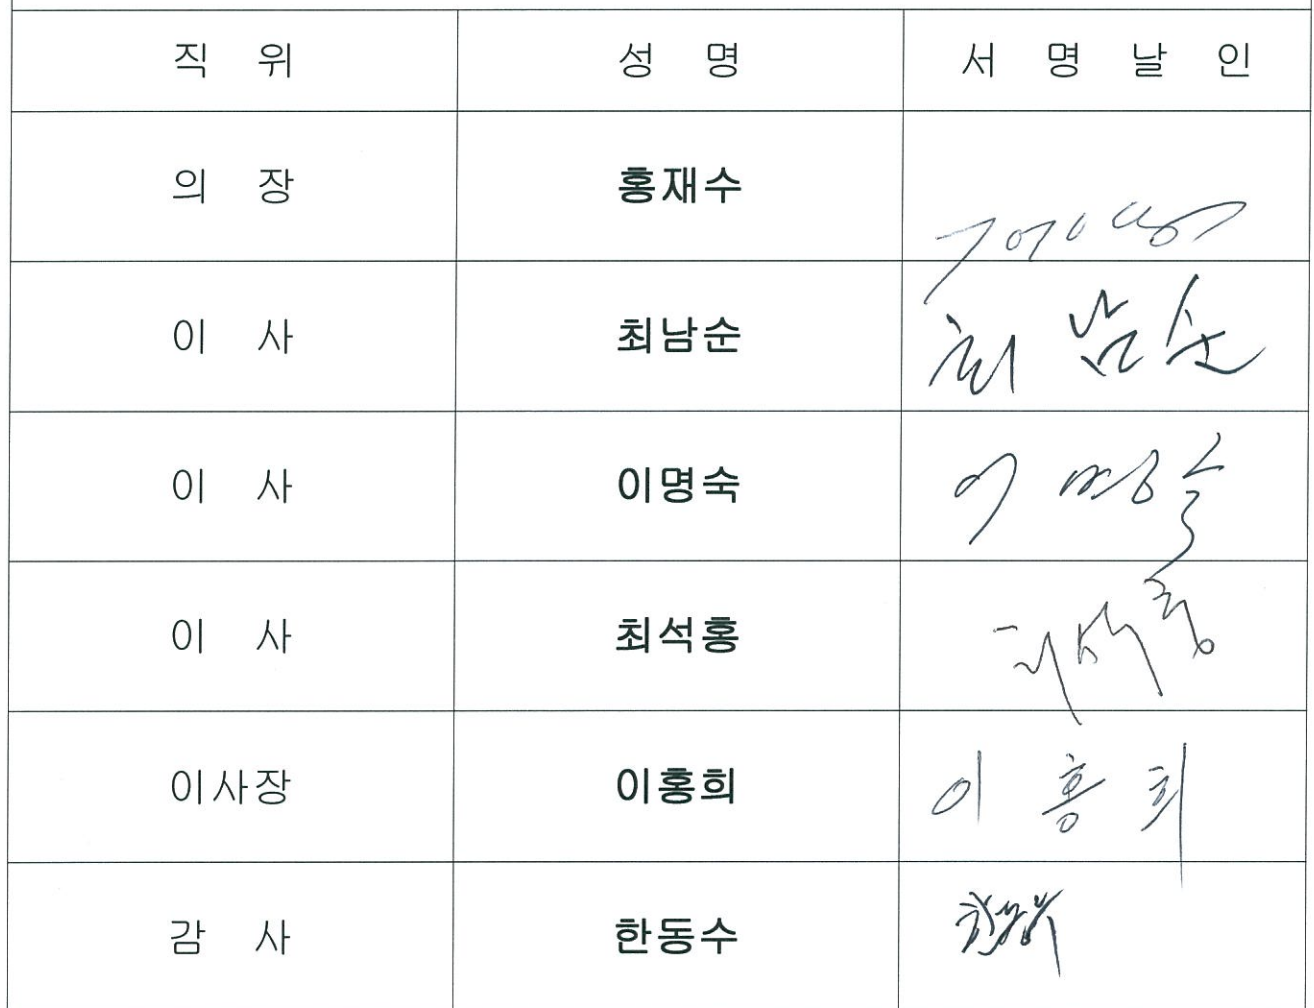 직 위 성 명 서 명 날 인
의 장 홍재수
이 사 최남순 최남순
이 사 이명숙 이명숙
이 사 최석홍 최석홍
이사장 이홍희 이홍희
감 사 한동수